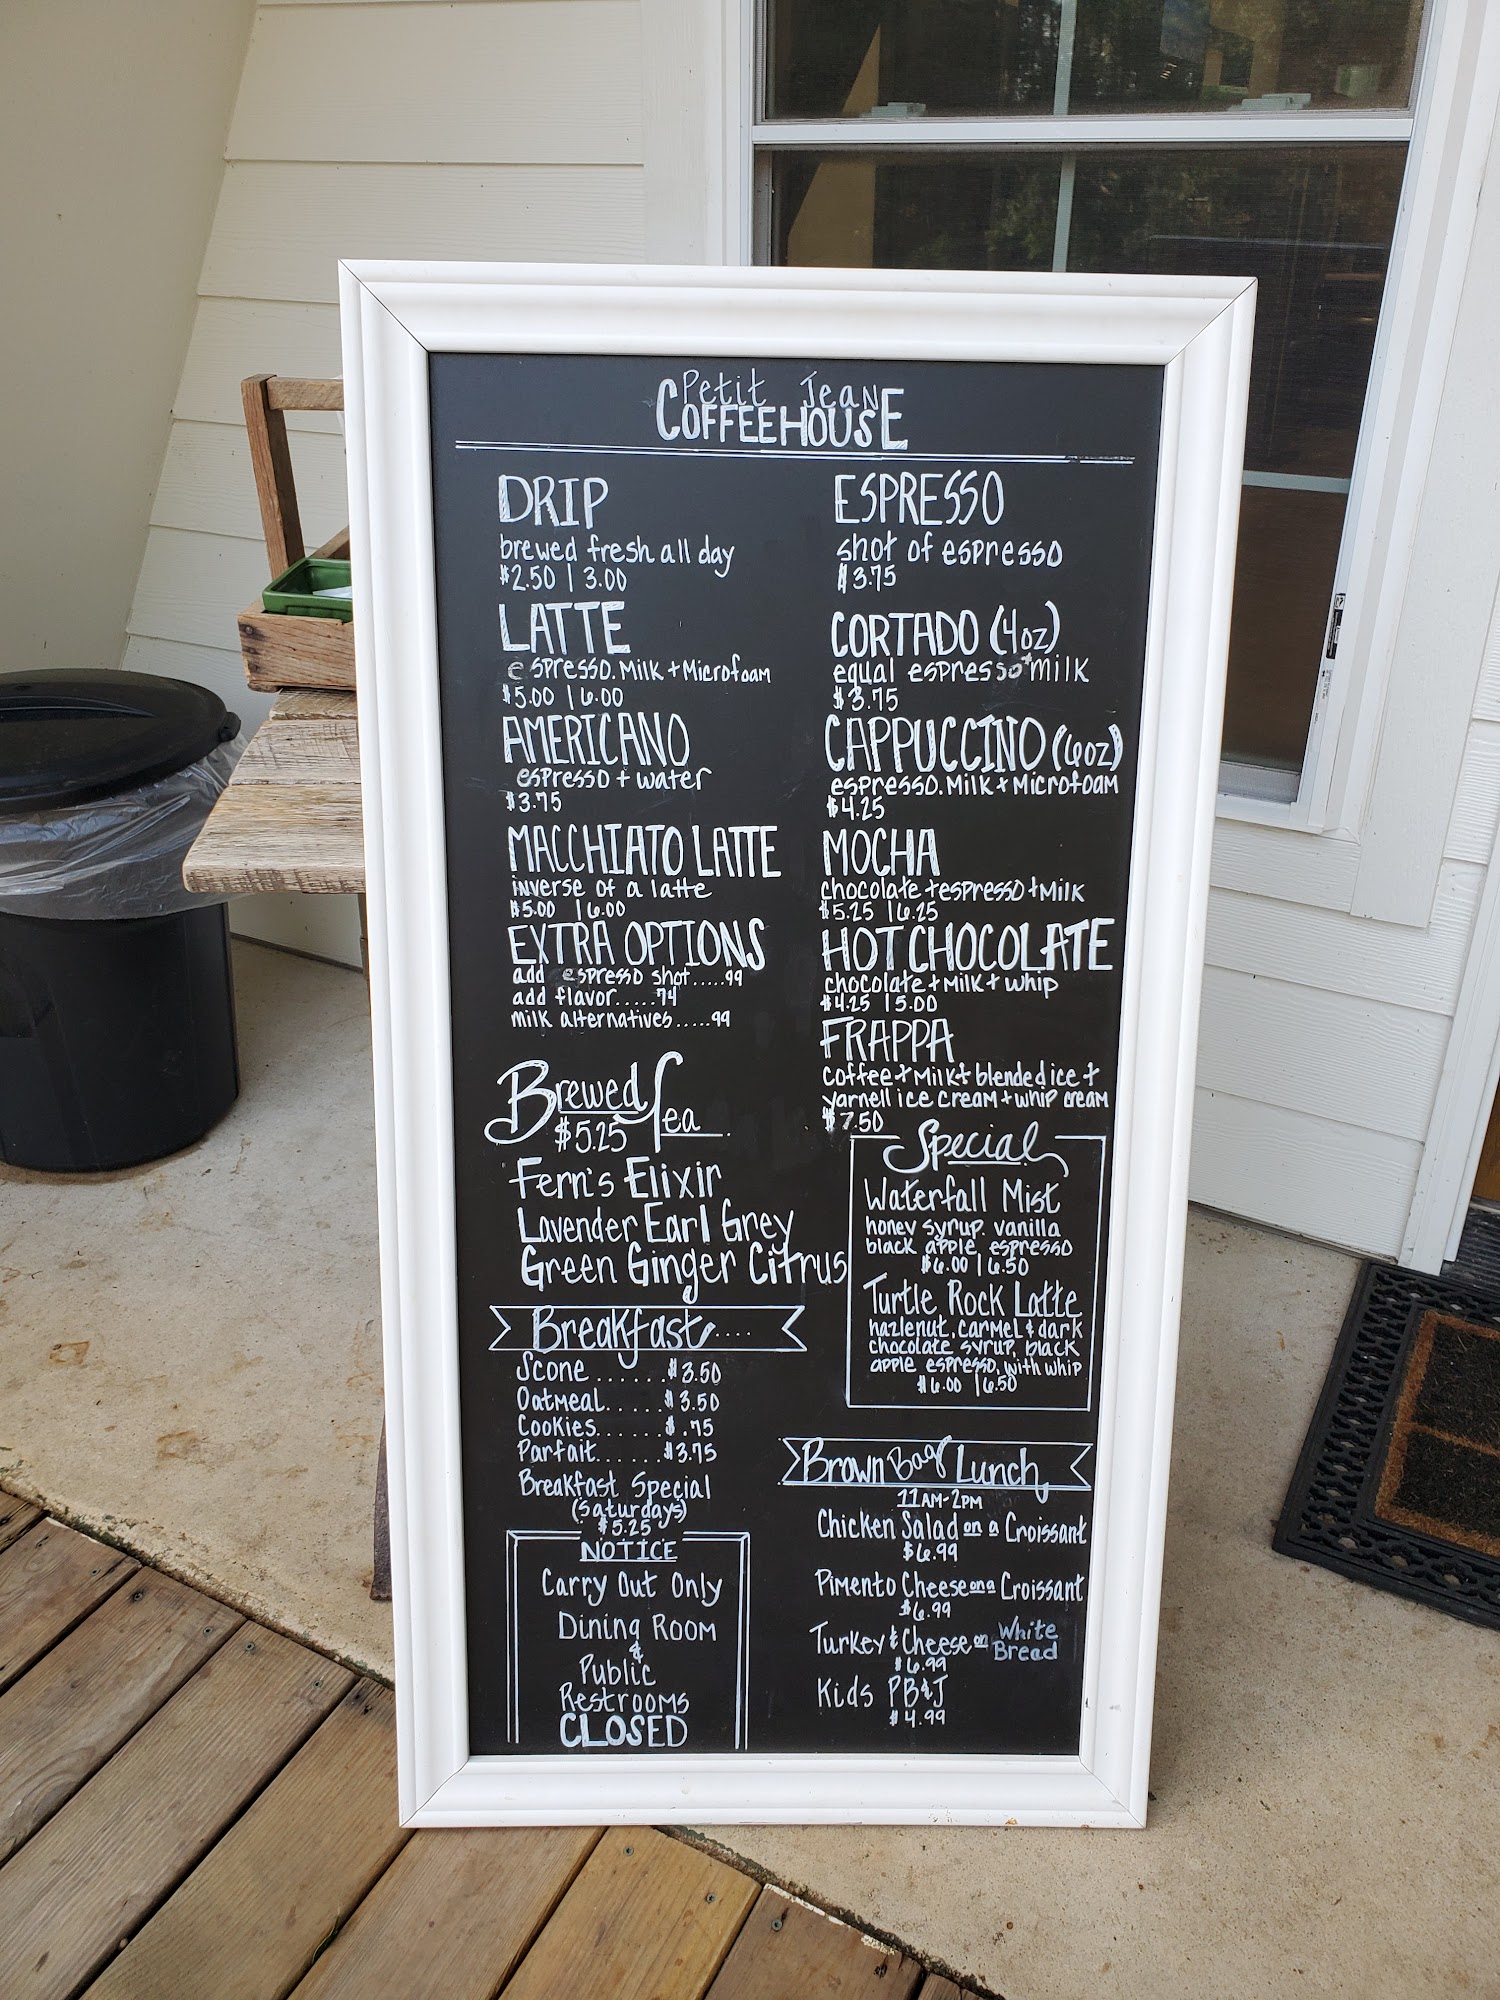 Petit Jean
COFFEEHOUSE
DRIP
brewed fresh all day
$2.50 | 3.00
LATTE
espresso. Milk + Microfoam
$5.00 | 6.00
AMERICANO
espresso + water
$3.75
MACCHIATO LATTE
inverse of a latte
$5.00 | 6.00
EXTRA OPTIONS
add espresso shot.....99
add flavor.....74
milk alternatives.....99
Brewed Tea
$5.25
Fern's Elixir
Lavender Earl Grey
Green Ginger Citrus
Breakfast....
Scone ......$3.50
Oatmeal.....$3.50
Cookies......$.75
Parfait......$3.75
Breakfast Special
(Saturdays)
$5.25
NOTICE
Carry Out Only
Dining Room
&
Public
Restrooms
CLOSED
ESPRESSO
shot of espresso
$3.75
CORTADO (4oz)
equal espresso+milk
$3.75
CAPPUCCINO (6oz)
espresso. Milk + Microfoam
$4.25
MOCHA
chocolate + espresso + Milk
$5.25 | 6.25
HOT CHOCOLATE
chocolate + Milk + whip
$4.25 | 5.00
FRAPPA
coffee + Milk + blended ice +
yarnell ice cream + whip cream
$7.50
Special
Waterfall Mist
honey syrup. vanilla
black apple espresso
$6.00 | 6.50
Turtle Rock Latte
hazlenut, carmel & dark
chocolate syrup, black
apple espresso, with whip
$6.00 | 6.50
Brown Bag Lunch
11AM-2PM
Chicken Salad on a Croissant
$6.99
Pimento Cheese on a Croissant
$6.99
Turkey & Cheese on White Bread
$6.99
Kids PB&J
$4.99